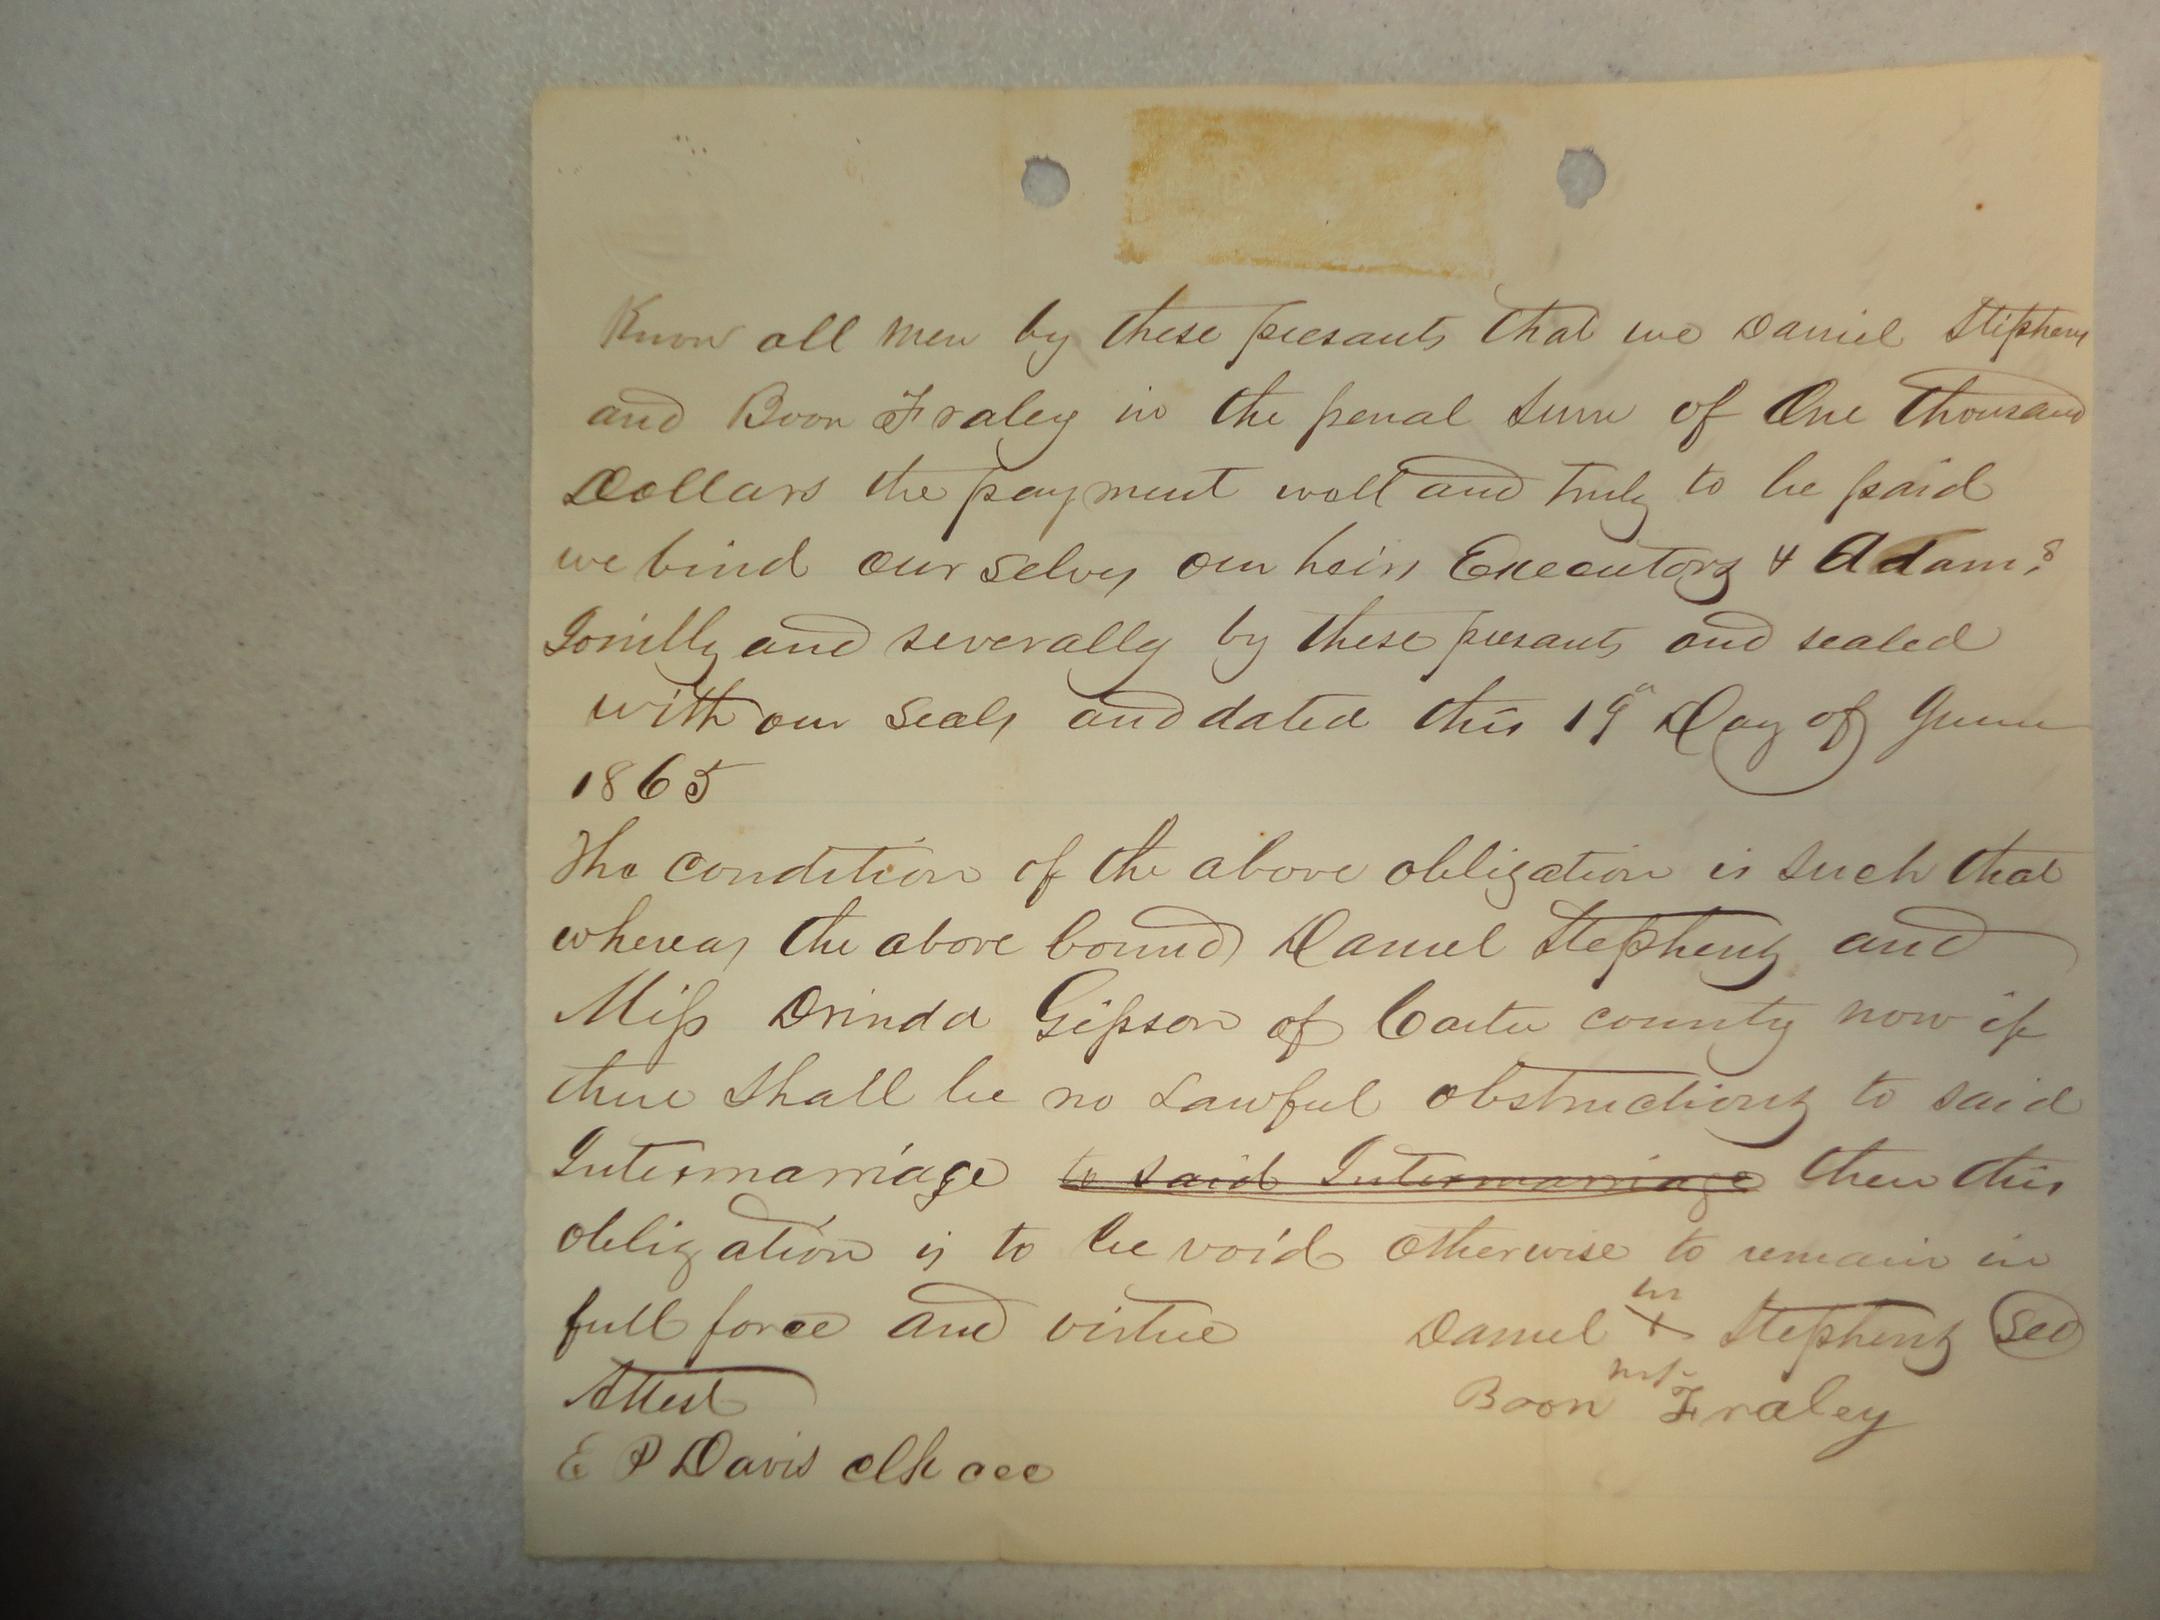 Know all men by these presants that we Daniel Stephens
and Boon Fraley in the penal sum of One thousand
Dollars the payment well and truly to be paid
we bind our selves our heirs Executors & Adam,s
Jointly and severally by these presants and sealed
with our seals and dated this 19" Day of June
1865
The condition of the above obligation is such that
whereas the above bound Daniel Stephens and
Miss Orinda Gipson of Carter county now if
there shall be no Lawful obstructions to said
Intermarriage to said Intermarriage then this
obligation is to be void otherwise to remain in
full force and virtue
his
Daniel X Stephens Sed
mk
Boon Fraley
Attest
E P Davis clk ccc